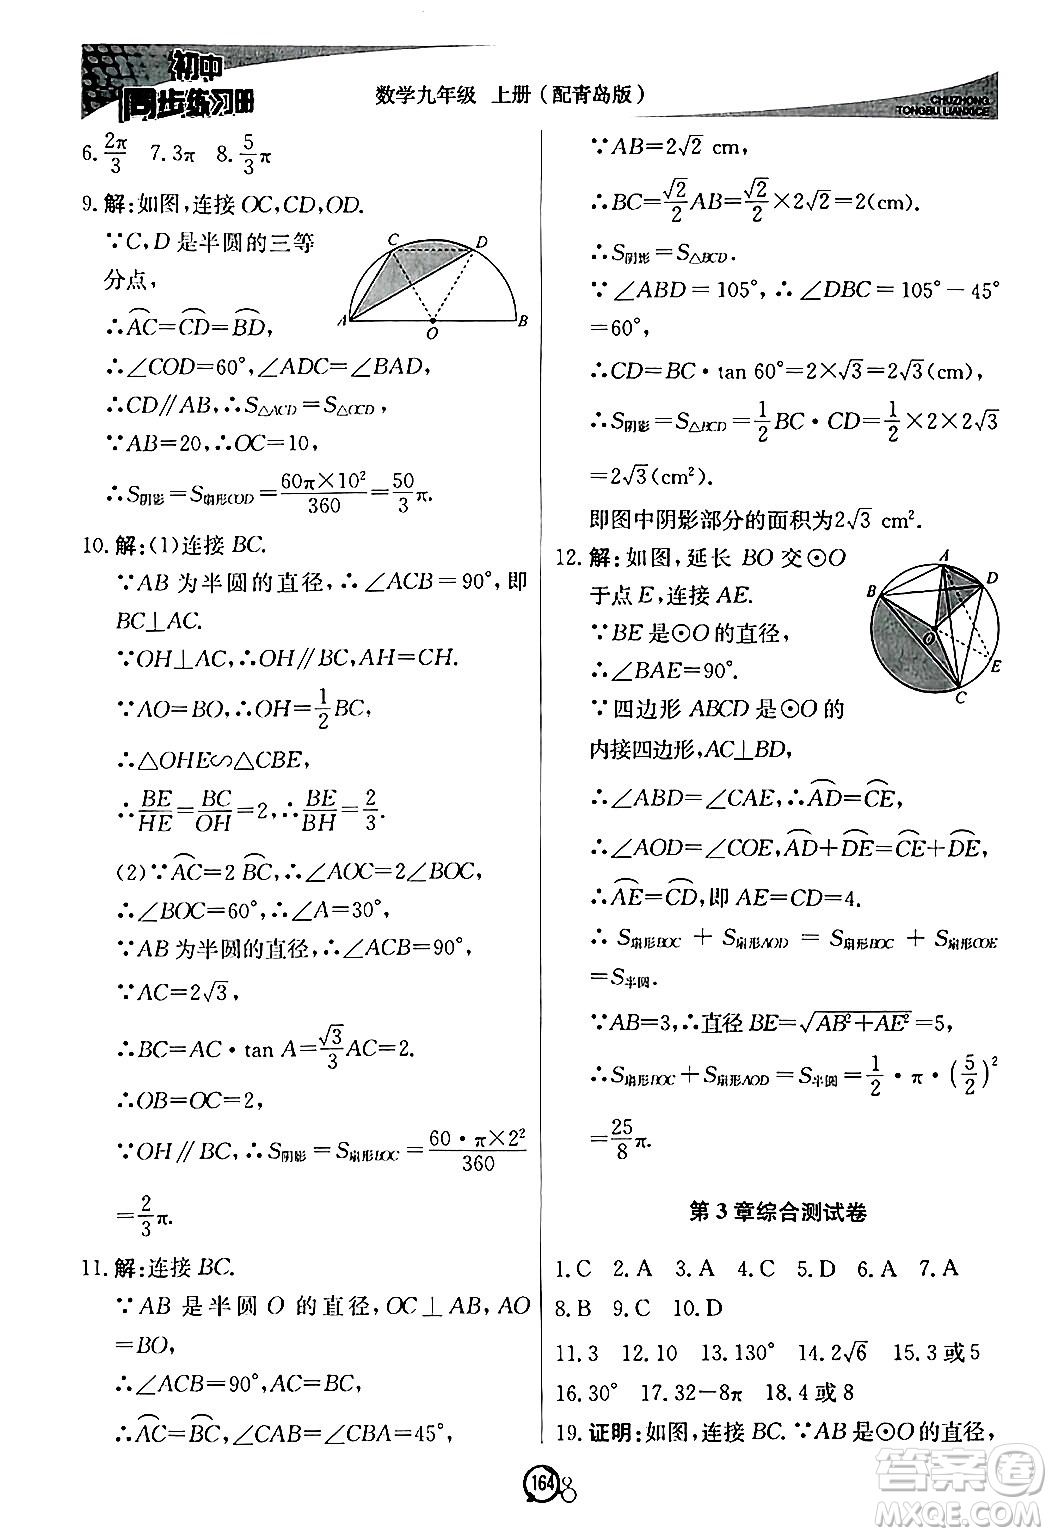 初中
同步练习册
数学九年级 上册(配青岛版)
CHUZHONG
TONGBU LIANXICE
6.2π/3 7.3π 8.5/3π
9.解:如图,连接 OC,CD,OD.
∵C,D 是半圆的三等
分点,
∴⌒AC=⌒CD=⌒BD,
∴∠COD=60°,∠ADC=∠BAD,
∴CD∥AB,∴S△ACD=S△OCD,
∵AB=20,∴OC=10,
∴S阴影=S扇形COD=60π×10²/360=50/3π.
C D
A O B
10.解:(1)连接 BC.
∵AB 为半圆的直径,∴∠ACB=90°,即
BC⊥AC.
∵OH⊥AC,∴OH∥BC,AH=CH.
∵AO=BO,∴OH=1/2BC,
∴△OHE∽△CBE,
∴BE/HE=BC/OH=2,∴BE/BH=2/3.
(2)∵⌒AC=2⌒BC,∴∠AOC=2∠BOC,
∴∠BOC=60°,∴∠A=30°,
∵AB为半圆的直径,∴∠ACB=90°,
∵AC=2√3,
∴BC=AC·tan A=√3/3AC=2.
∴OB=OC=2,
∵OH∥BC,∴S阴影=S扇形BOC=60·π×2²/360
=2/3π.
11.解:连接 BC.
∵AB 是半圆 O 的直径,OC⊥AB,AO
=BO,
∴∠ACB=90°,AC=BC,
∴⌒AC=⌒BC,∠CAB=∠CBA=45°,
∵AB=2√2 cm,
∴BC=√2/2AB=√2/2×2√2=2(cm).
∴S阴影=S△BCD.
∵∠ABD=105°,∴∠DBC=105°-45°
=60°,
∴CD=BC·tan 60°=2×√3=2√3(cm),
∴S阴影=S△BCD=1/2BC·CD=1/2×2×2√3
=2√3(cm²).
即图中阴影部分的面积为2√3 cm².
12.解:如图,延长 BO 交⊙O
于点 E,连接 AE.
∵BE 是⊙O 的直径,
∴∠BAE=90°.
∵四边形 ABCD 是⊙O 的
内接四边形,AC⊥BD,
∴∠ABD=∠CAE,∴⌒AD=⌒CE,
∴∠AOD=∠COE,⌒AD+⌒DE=⌒CE+⌒DE,
∴⌒AE=⌒CD,即 AE=CD=4.
∴S扇形BOC+S扇形AOD=S扇形BOC+S扇形COE
=S半圆.
∵AB=3,∴直径 BE=√AB²+AE²=5,
∴S扇形BOC+S扇形AOD=S半圆=1/2·π·(5/2)²
=25/8π.
A D
B
O
E
C
第 3 章综合测试卷
1.C 2.A 3.A 4.C 5.D 6.A 7.A
8.B 9.C 10.D
11.3 12.10 13.130° 14.2√6 15.3 或5
16.30° 17.32-8π 18.4 或 8
19.证明:如图,连接 BC.∵AB 是⊙O 的直径,
164
答案圈
MXQE.COM